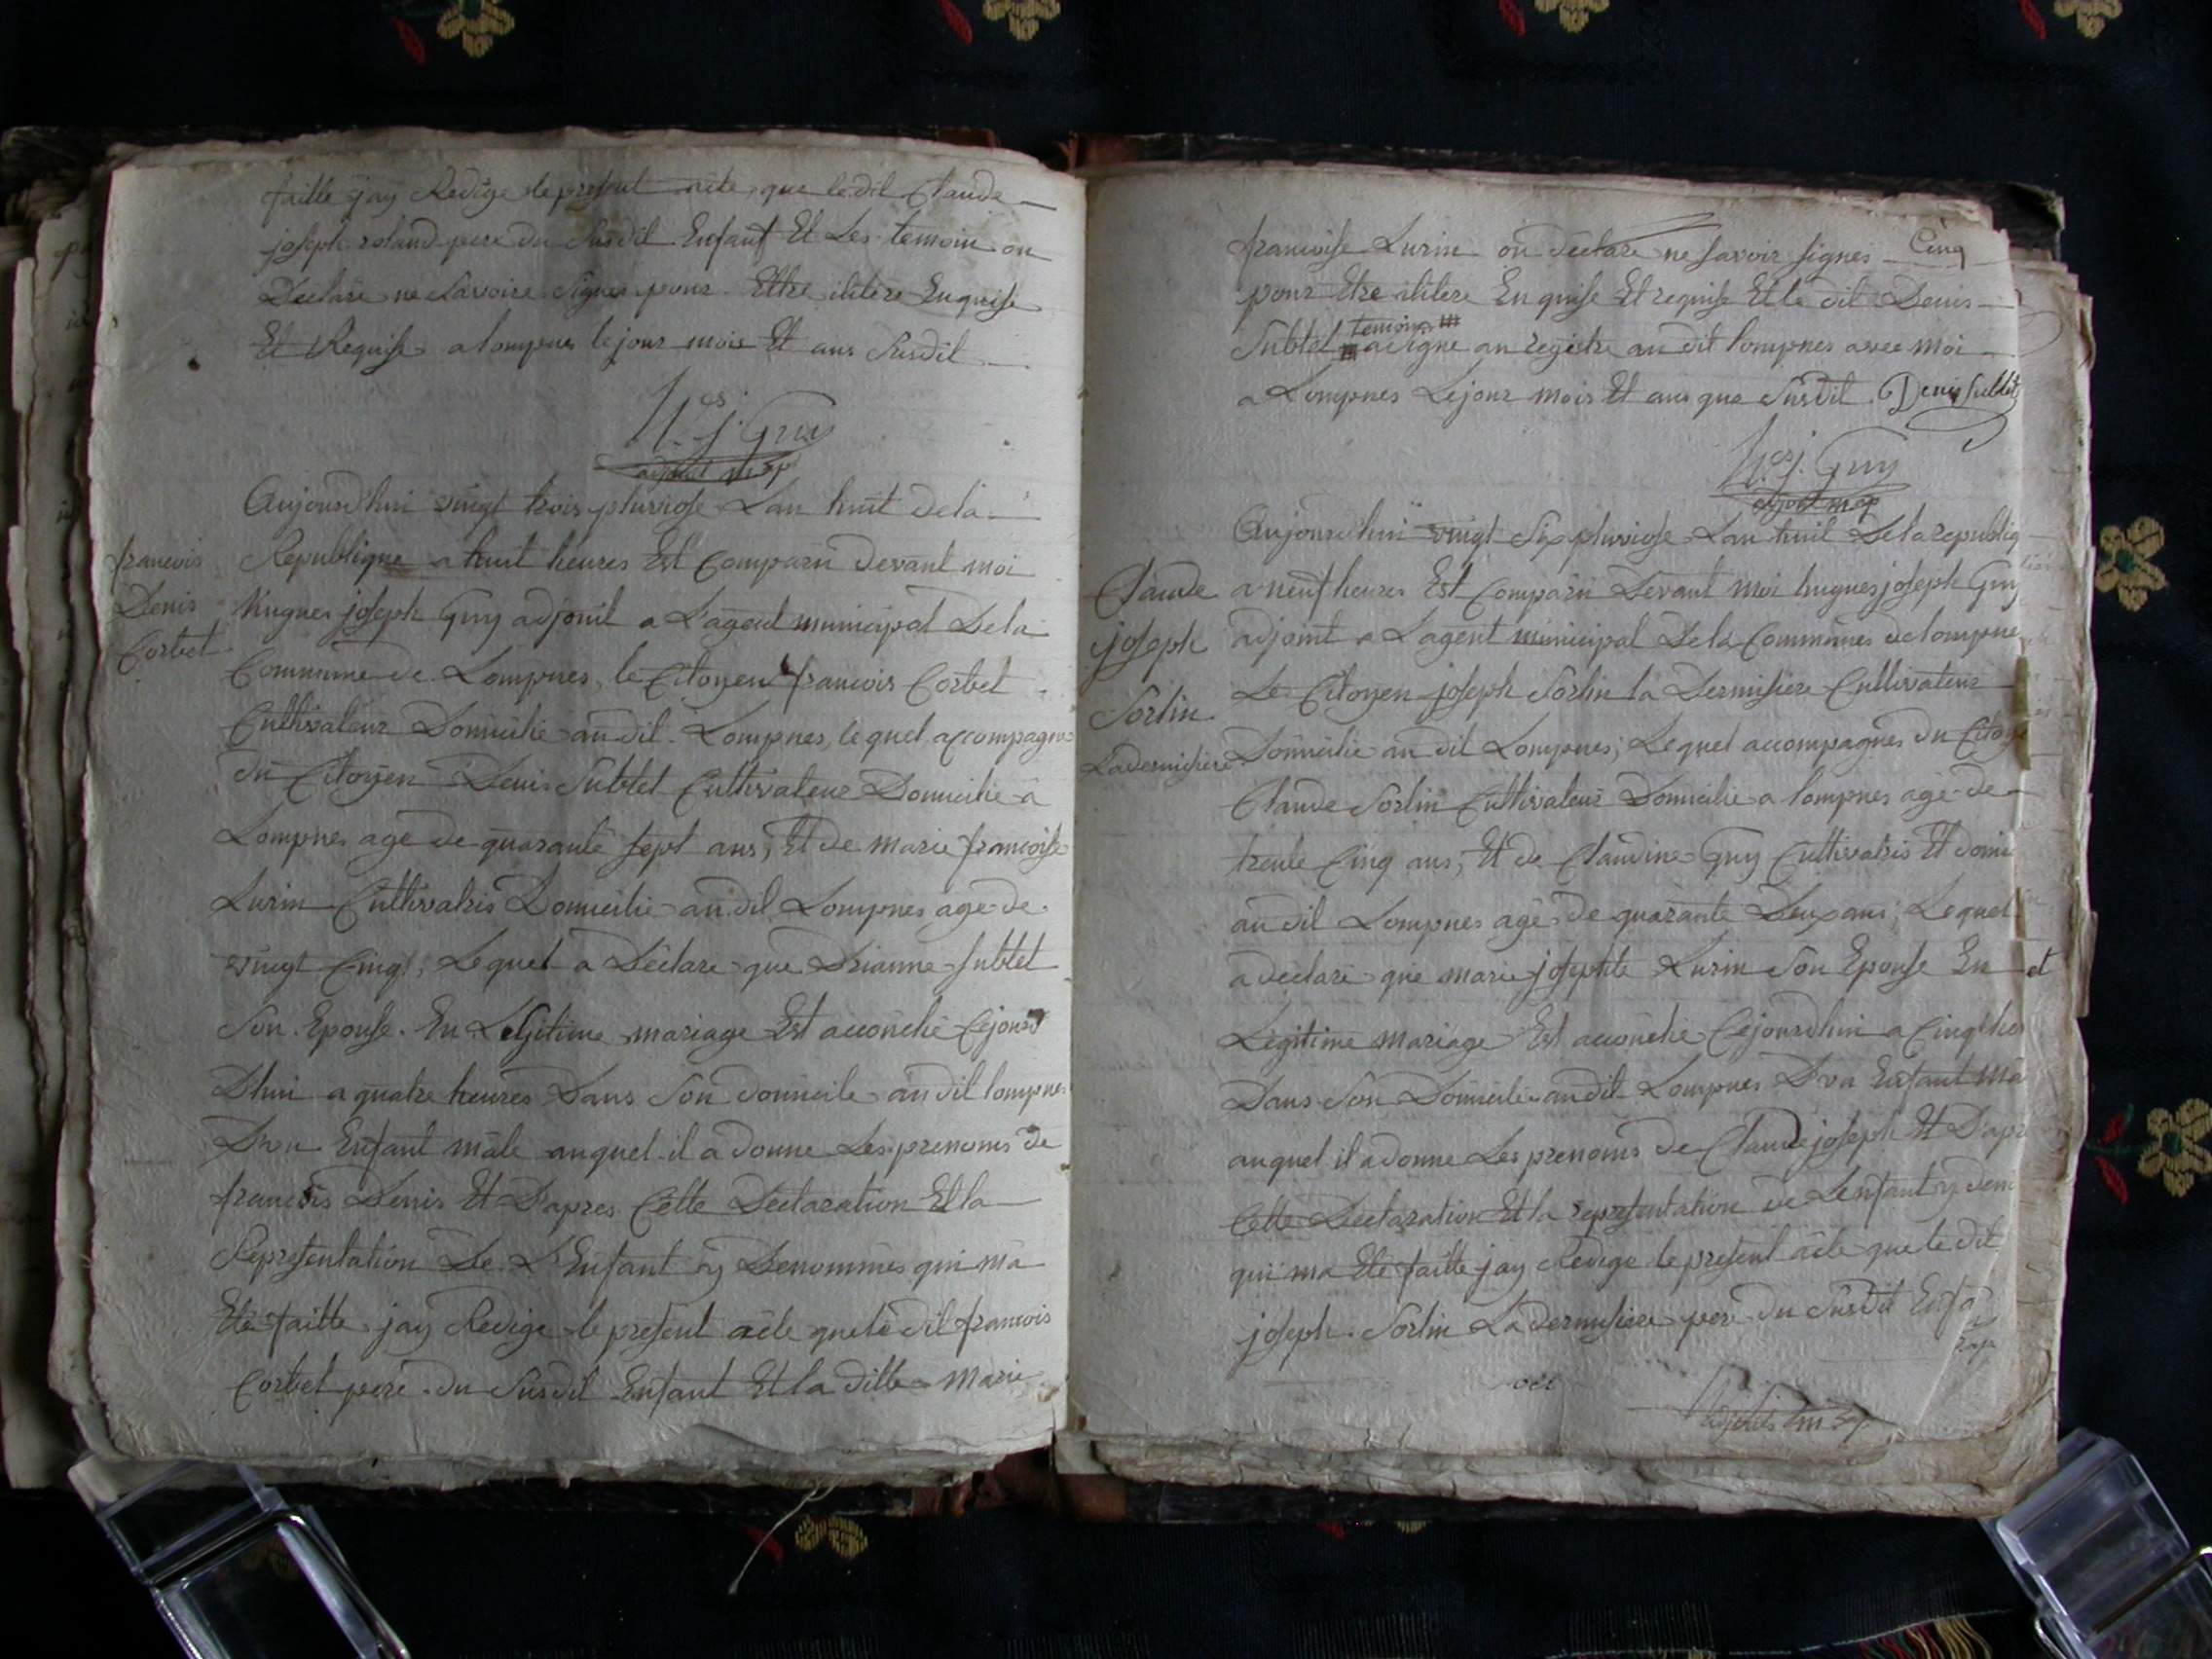 faitte jay Redige le present acte, que le dit Claude
joseph roland pere du Susdit Enfant Et Les temoin on
Declare ne Savoire Signer pour Ettre ilitere Enquise
Et Requise a lompnes le jour mois Et ans Susdit
H.es j. Guy
adjoint m
Aujourdhui vingt trois pluviose Lan huit de la
francois
Denis
Corbet
Republique a huit heures Est Comparu devant moi
hugues joseph Guy adjoint a Lagent municipal De la
Commune de Lompnes, le Citoyen francois Corbet
Cultivateur Domicilie au dit Lompnes, lequel accompagne
du Citoyen Denis Sublet Cultivateur Domicilie a
Lompnes age de quarante sept ans, Et de marie francoise
Lurin Cultivatris Domicilie au dit Lompnes age de
vingt Cinq; Lequel a Declare que Drianne Sublet
Son Epouse En Legitime mariage Est accouche Cejourd
Dhui a quatre heures Dans Son domicile au dit lompnes
Dvn Enfant male auquel il a donne Les prenoms de
francois Denis Et D'apres Cette Declaration Et la
Representation De L'Enfant y Denommes qui ma
Ete faitte jay Redige le present acte que le dit francois
Corbet pere du Susdit Enfant Et la ditte Marie
francoise Lurin on declare ne savoir signer Cinq
pour Etre ilitere Enquise Et requise Et le dit Denis
temoins
Sublet a signe au registre au dit lompnes avec moi
a Lompnes Le jour mois Et ans que Susdit Denis Sublet
H.es j. Guy
adjoint m
Aujourdhui vingt Six pluviose Lan huit De la republiq
Claude
joseph
Sorlin
Ladermisiere
a neuf heures Est Comparu Devant moi hugues joseph Guy
adjoint a Lagent municipal De la Communes de lompne
Le Citoyen joseph Sorlin la Dermisiere Cultivateur
Domicilie au dit Lompnes; Lequel accompagnes du Citoye
Claude Sorlin Cultivateur Domicilie a lompnes age de
trente Cinq ans, Et de Claudine Guy Cultivatris Et domi
au dit Lompnes age de quarante Deux ans; Lequel
a declare que marie josephte Lurin Son Epouse En et
Legitime mariage Est accouche Cejourdhui a Cinq heu
Dans Son Domicile au dit Lompnes Dvn Enfant ma
auquel il a donne Les prenoms de Claude joseph Et D'apr
Cette Declaration Et la representation de Lenfant y deno
qui ma Ete faitte jay Redige le present acte que le dit
joseph Sorlin Ladermisiere pere du Susdit Enfa